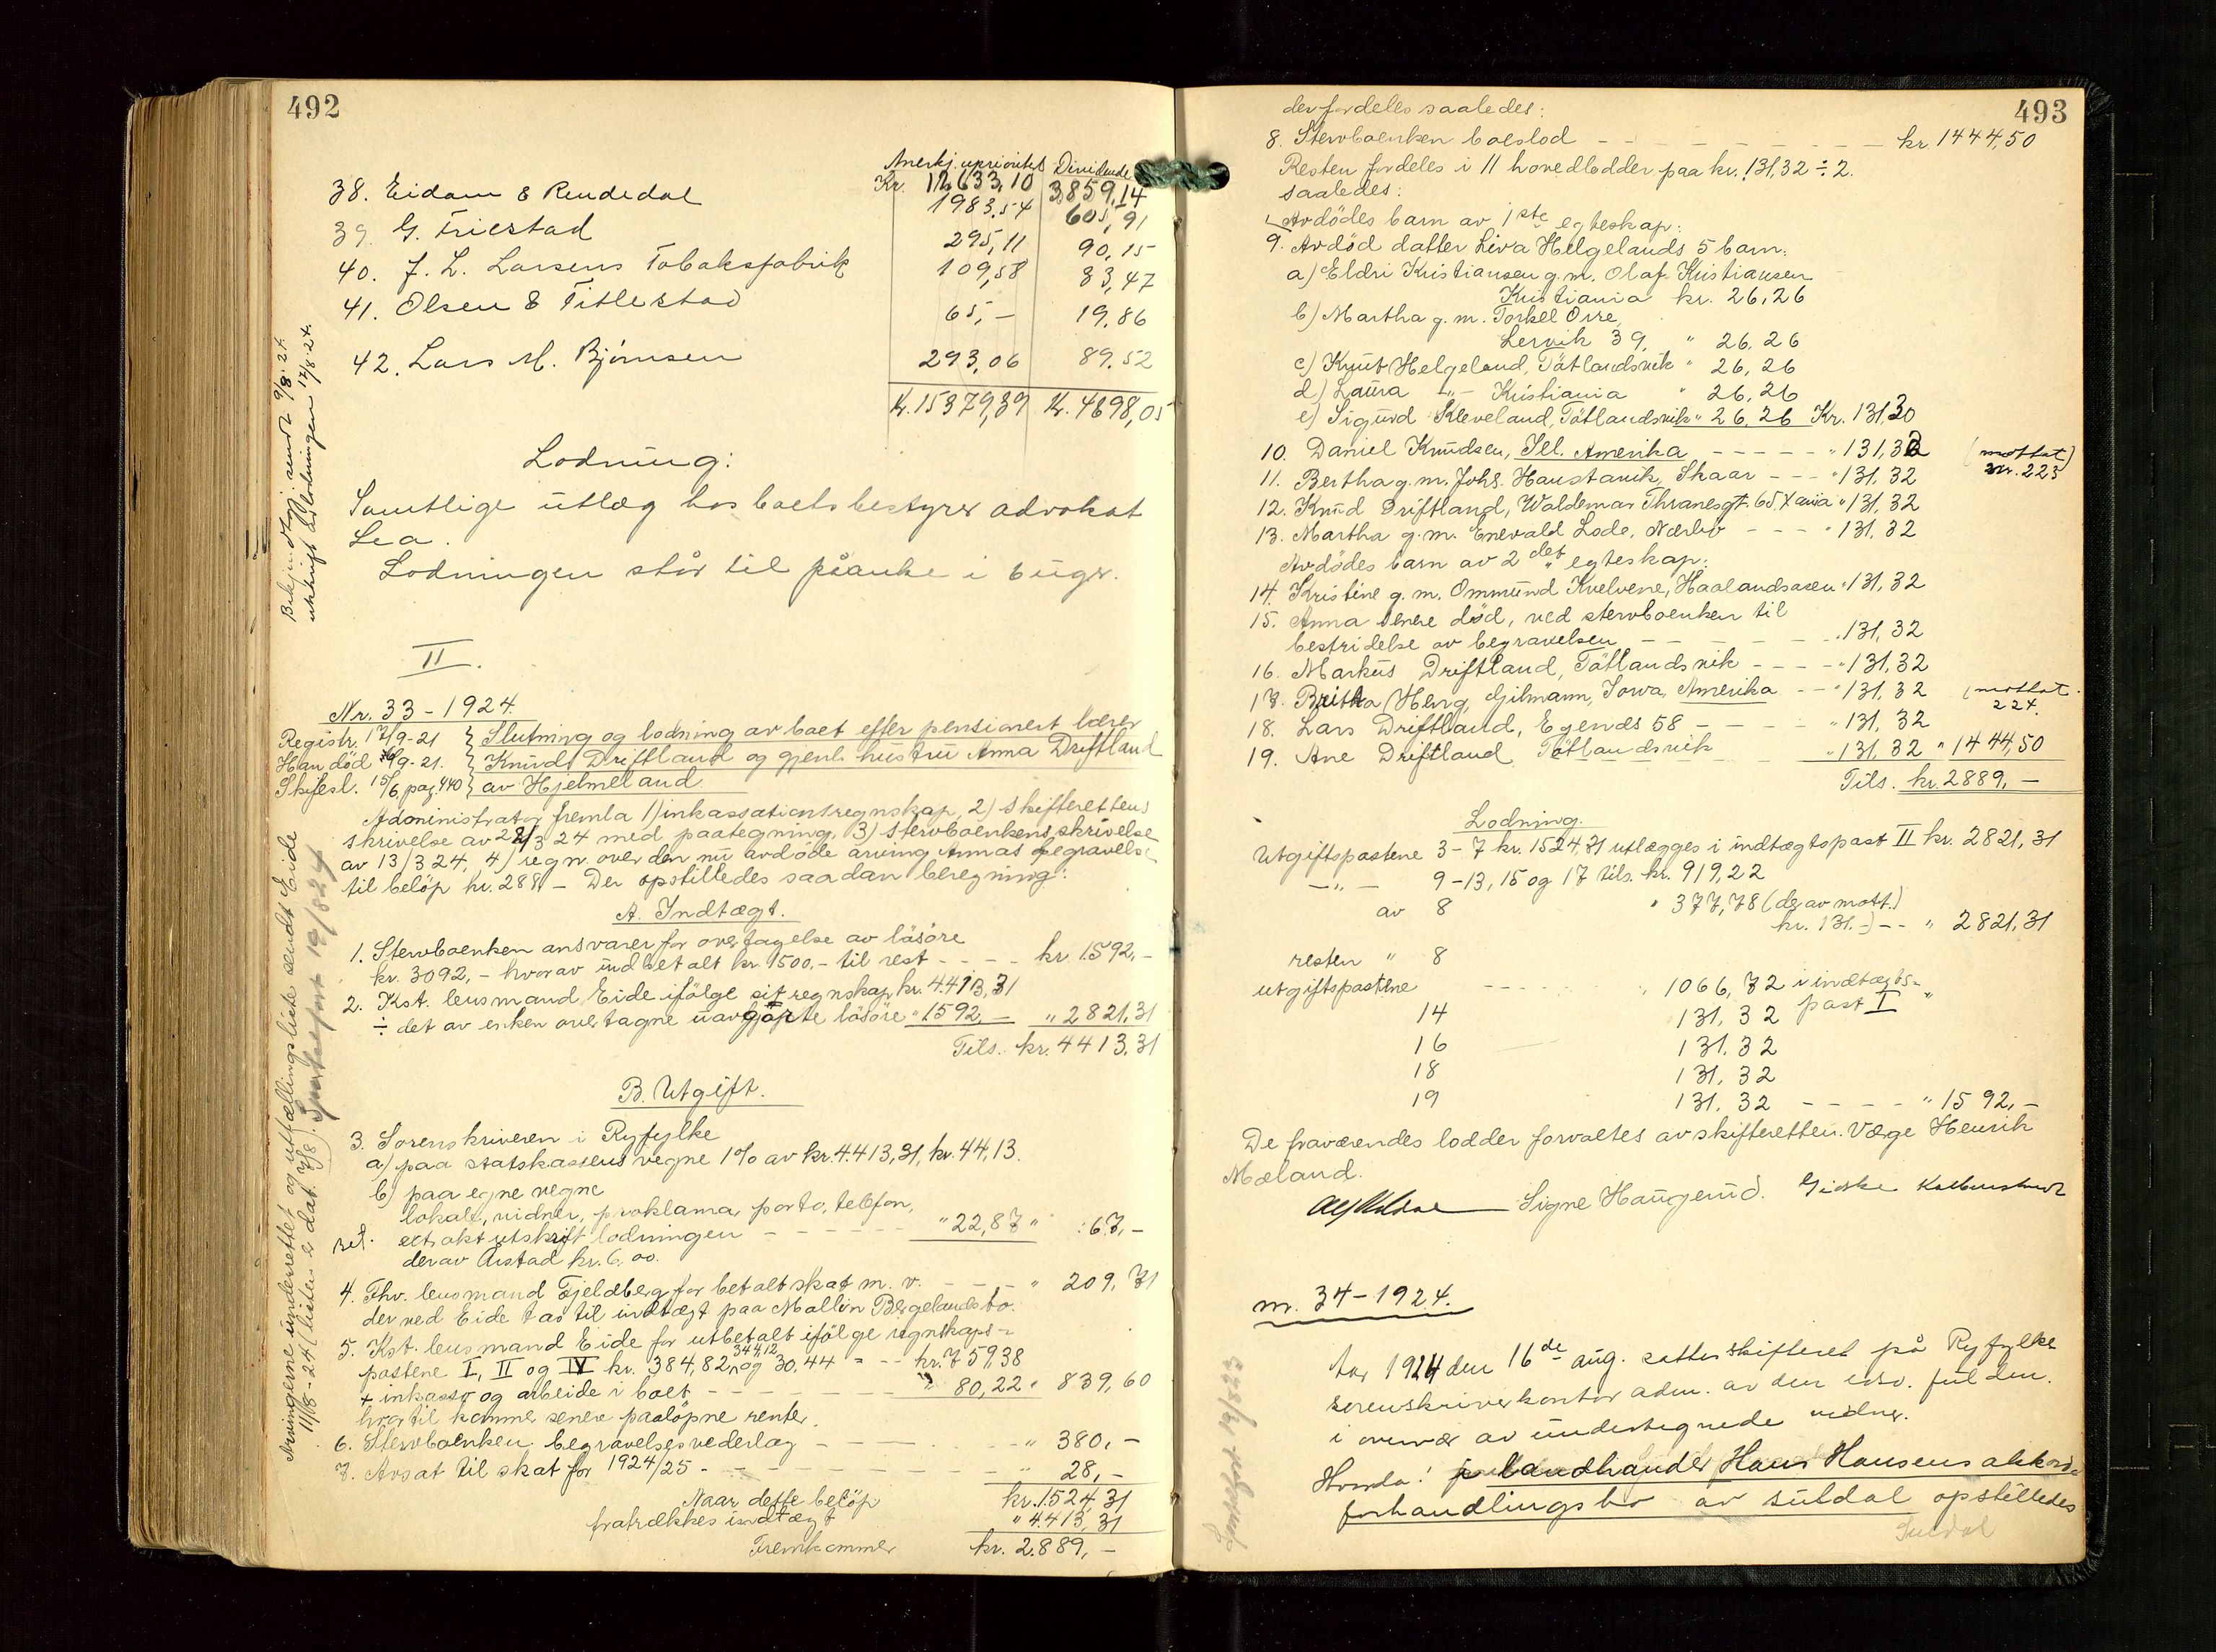 492
Anerkj. uprioritet Dividende
38. Eidam & Rendedal Kr. 12633,10 3859,14
1983.54 605,91
39. G. Friestad 295,11 90,15
40. J. L. Larsens Tobaksfabrik 109,58 33,47
41. Olsen & Titlestad 65,- 19.86
42. Lars M. Bjørnsen 293,06 89.52
Kr. 15379,39 Kr. 4698,05
Lodning:
Samtlige utlæg hos boets bestyrer advokat
Lea.
Lodningen står til påanke i 6 uger.
II.
Nr. 33 - 1924.
Registr. 17/9-21 } Slutning og lodning av boet efter pensionert lærer
Han død 9-21. } Knud Driftland og gjenl. hustru Anna Driftland
Skifesl. 15/6 pag. 440 } av Hjelmeland.
Administrator fremla 1) inkassationsregnskap, 2) skifterettens
skrivelse av 28/3 24 med paategning, 3) stervboenkens skrivelse
av 13/3 24, 4) regn. over den nu avdøde arving Annas begravelse
til beløp kr. 288 - Der opstilledes saadan beregning:
A. Indtægt.
1. Stervboenken ansvarer for overtagelse av løsøre
kr. 3092,- hvorav indbetalt kr. 1500,- til rest - - - - kr. 1592,-
2. Kst. lensmand Eide ifølge sit regnskap kr. 4413,31
÷ det av enken overtagne uavgjorte løsøre " 1592,- " 2821,31
Tils. kr. 4413,31
B. Utgift.
3. Sorenskriveren i Ryfylke
a) paa statskassens vegne 1% av kr. 4413,31, kr. 44,13.
b) paa egne vegne
lokale, vidner, proklama, porto, telefon,
ekstraktutskrift lodningen - - " 22,87 " 67,-
derav Aistad kr. 6,00.
4. Fhv. lensmand Fjeldberg for betalt skat m. v. - - - " 209,71
der ved Eide tas til indtægt paa Mallin Bergelands bo.
5. Kst. lensmand Eide for utbetalt ifølge regnskaps-
344,12
postene I, II og IV kr. 384,82 og 30.44 = -- kr. 759,38
+ inkasso og arbeide i boet - - - - - " 80,22 " 839,60
hvortil kommer senere paaløpne renter.
6. Stervboenken begravelsesvederlag - - - " 380,-
7. Avsat til skat for 1924/25 - - - - - - " 28,-
Naar dette beløp kr. 1524,31
fratrækkes indtægt " 4413,31
Fremkommer kr. 2889,-
utskrift av lodningen 17/8-24.
Arvingerne underrettet og utfællingsliste sendt Eide
11/8-24 (listen er dat. 7/8)
493
der fordeles saaledes:
8. Stervboenken boeslod - - - - - - - kr. 1444,50
Resten fordeles i 11 hovedlodder paa kr. 131,32 ÷ 2.
saaledes:
Avdødes barn av 1ste egteskap:
9. Avdød datter Liva Helgelands 5 barn:
a) Eldri Kristiansen g. m. Olaf Kristiansen
Kristiania kr. 26,26
b) Martha g. m. Torkel Orre,
Lervik 39, " 26,26
c) Knut Helgeland, Tøtlandsvik " 26,26
d) Laura -"- Kristiania " 26,26
e) Sigurd Kleveland, Tøtlandsvik " 26,26 Kr. 131,30
10. Daniel Knudsen, Sel. Amerika - - - - - " 131,32 (mottat)
nr. 223
11. Bertha g. m. Johs. Haustavik, Skaar - - - " 131,32
12. Knud Driftland, Waldemar Thranesgt. 65, Xania " 131,32
13. Martha g. m. Enevald Lode, Nærbø - - - " 131,32
Avdødes barn av 2det egteskap:
14. Kristine g. m. Ommund Kvelvene, Haalandsosen " 131,32
15. Anna senere død, ved stervboenken til
bestridelse av begravelsen - - - - - " 131,32
16. Markus Driftland, Tøtlandsvik - - - - " 131,32
17. Britha Herg, Gilmann, Iowa, Amerika - - " 131,32 (mottat.
224.
18. Lars Driftland, Egenæs 58 - - - - " 131,32
19. Ane Driftland, Tøtlandsvik " 131,32 " 1444,50
Tils. kr. 2889,-
Lodning.
Utgiftspostene 3-7 kr. 1524,31 utlægges i indtægtspost II kr. 2821,31
-"- 9-13, 15 og 17 tils. kr. 919,22
av 8 " 377,78 (derav mott.
kr. 131.-) -- " 2821,31
resten " 8
utgiftspostene - - - - - " 1066,72 i indtægts-
14 131,32 post I "
16 131,32
18 131,32
19 131,32 - - - - " 1592,-
De fraværendes lodder forvaltes av skifteretten. Væge Henrik
Mæland.
Signe Haugerud.
nr. 34-1924.
Aar 1924 den 16de aug. sattes skifteret på Ryfylke
sorenskriverkontor adm. av den edsv. fuldm.
i overvær av undertegnede vidner.
Hvorda: landhandler Hans Hansens akkord-
forhandlingsbo av Suldal opstilledes
Suldal